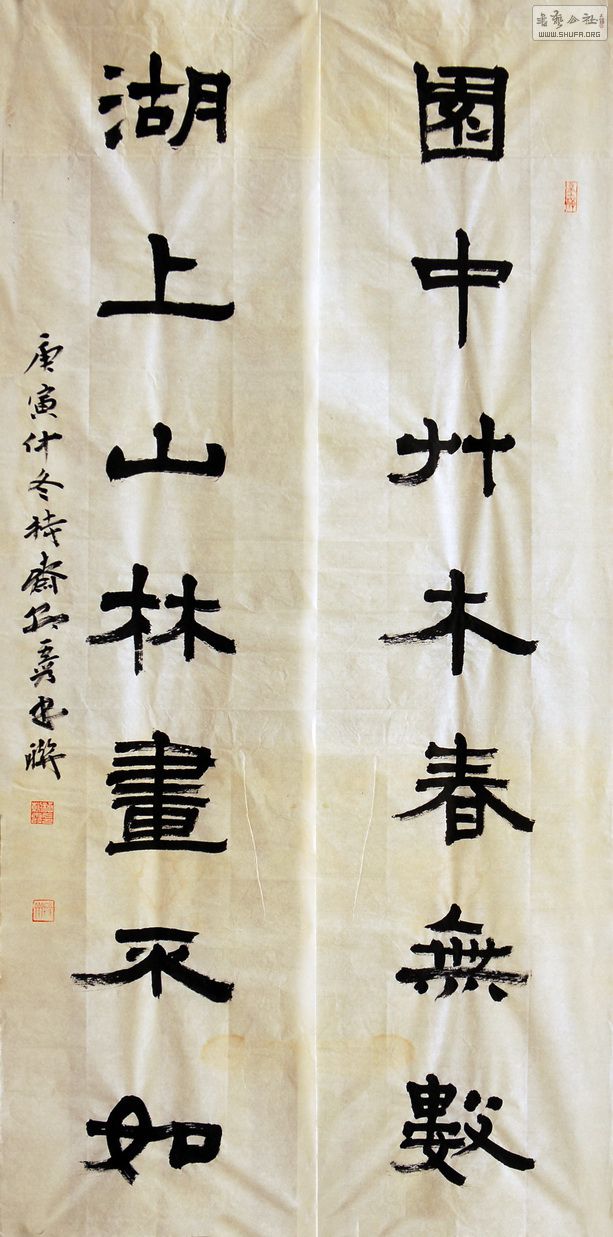 園中艸木春無數
湖上山林畫不如
庚寅仲冬
書聯
書藝公社
WWW.SHUFA.ORG